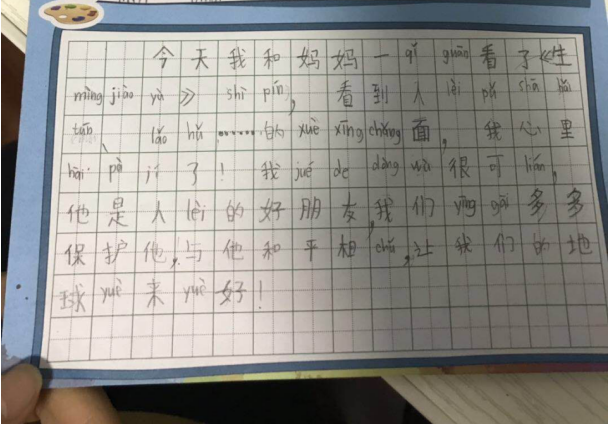 今天我和妈妈一qǐ guān看了《生
mìng jiào yù》shì pín，看到人lèi pū shā hǎi
tún、lǎo hǔ……的xuè xīng chǎng面，我心里
hài pà jí了！我jué de dòng wù很可lián，
他是人lèi的好朋友，我们yīng gāi多多
保护他，与他和平相chǔ，让我们的地
球yuè来yuè好！